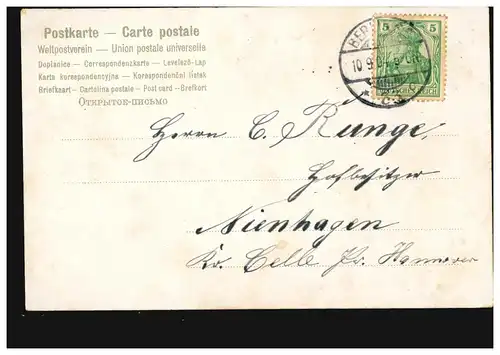 Postkarte — Carte postale
Weltpostverein — Union postale universelle
Dopisnice — Correspondenzkarte — Levelező-Lap
Karta korespondencyjna — Korespondenční lístek
Briefkaart — Cartolina postale — Post card — Brefkort
Открытое-письмо
5 5
BER
10.9
Herrn C. Runge
Hofbesitzer
Nienhagen
Kr. Celle Pr. Hannover